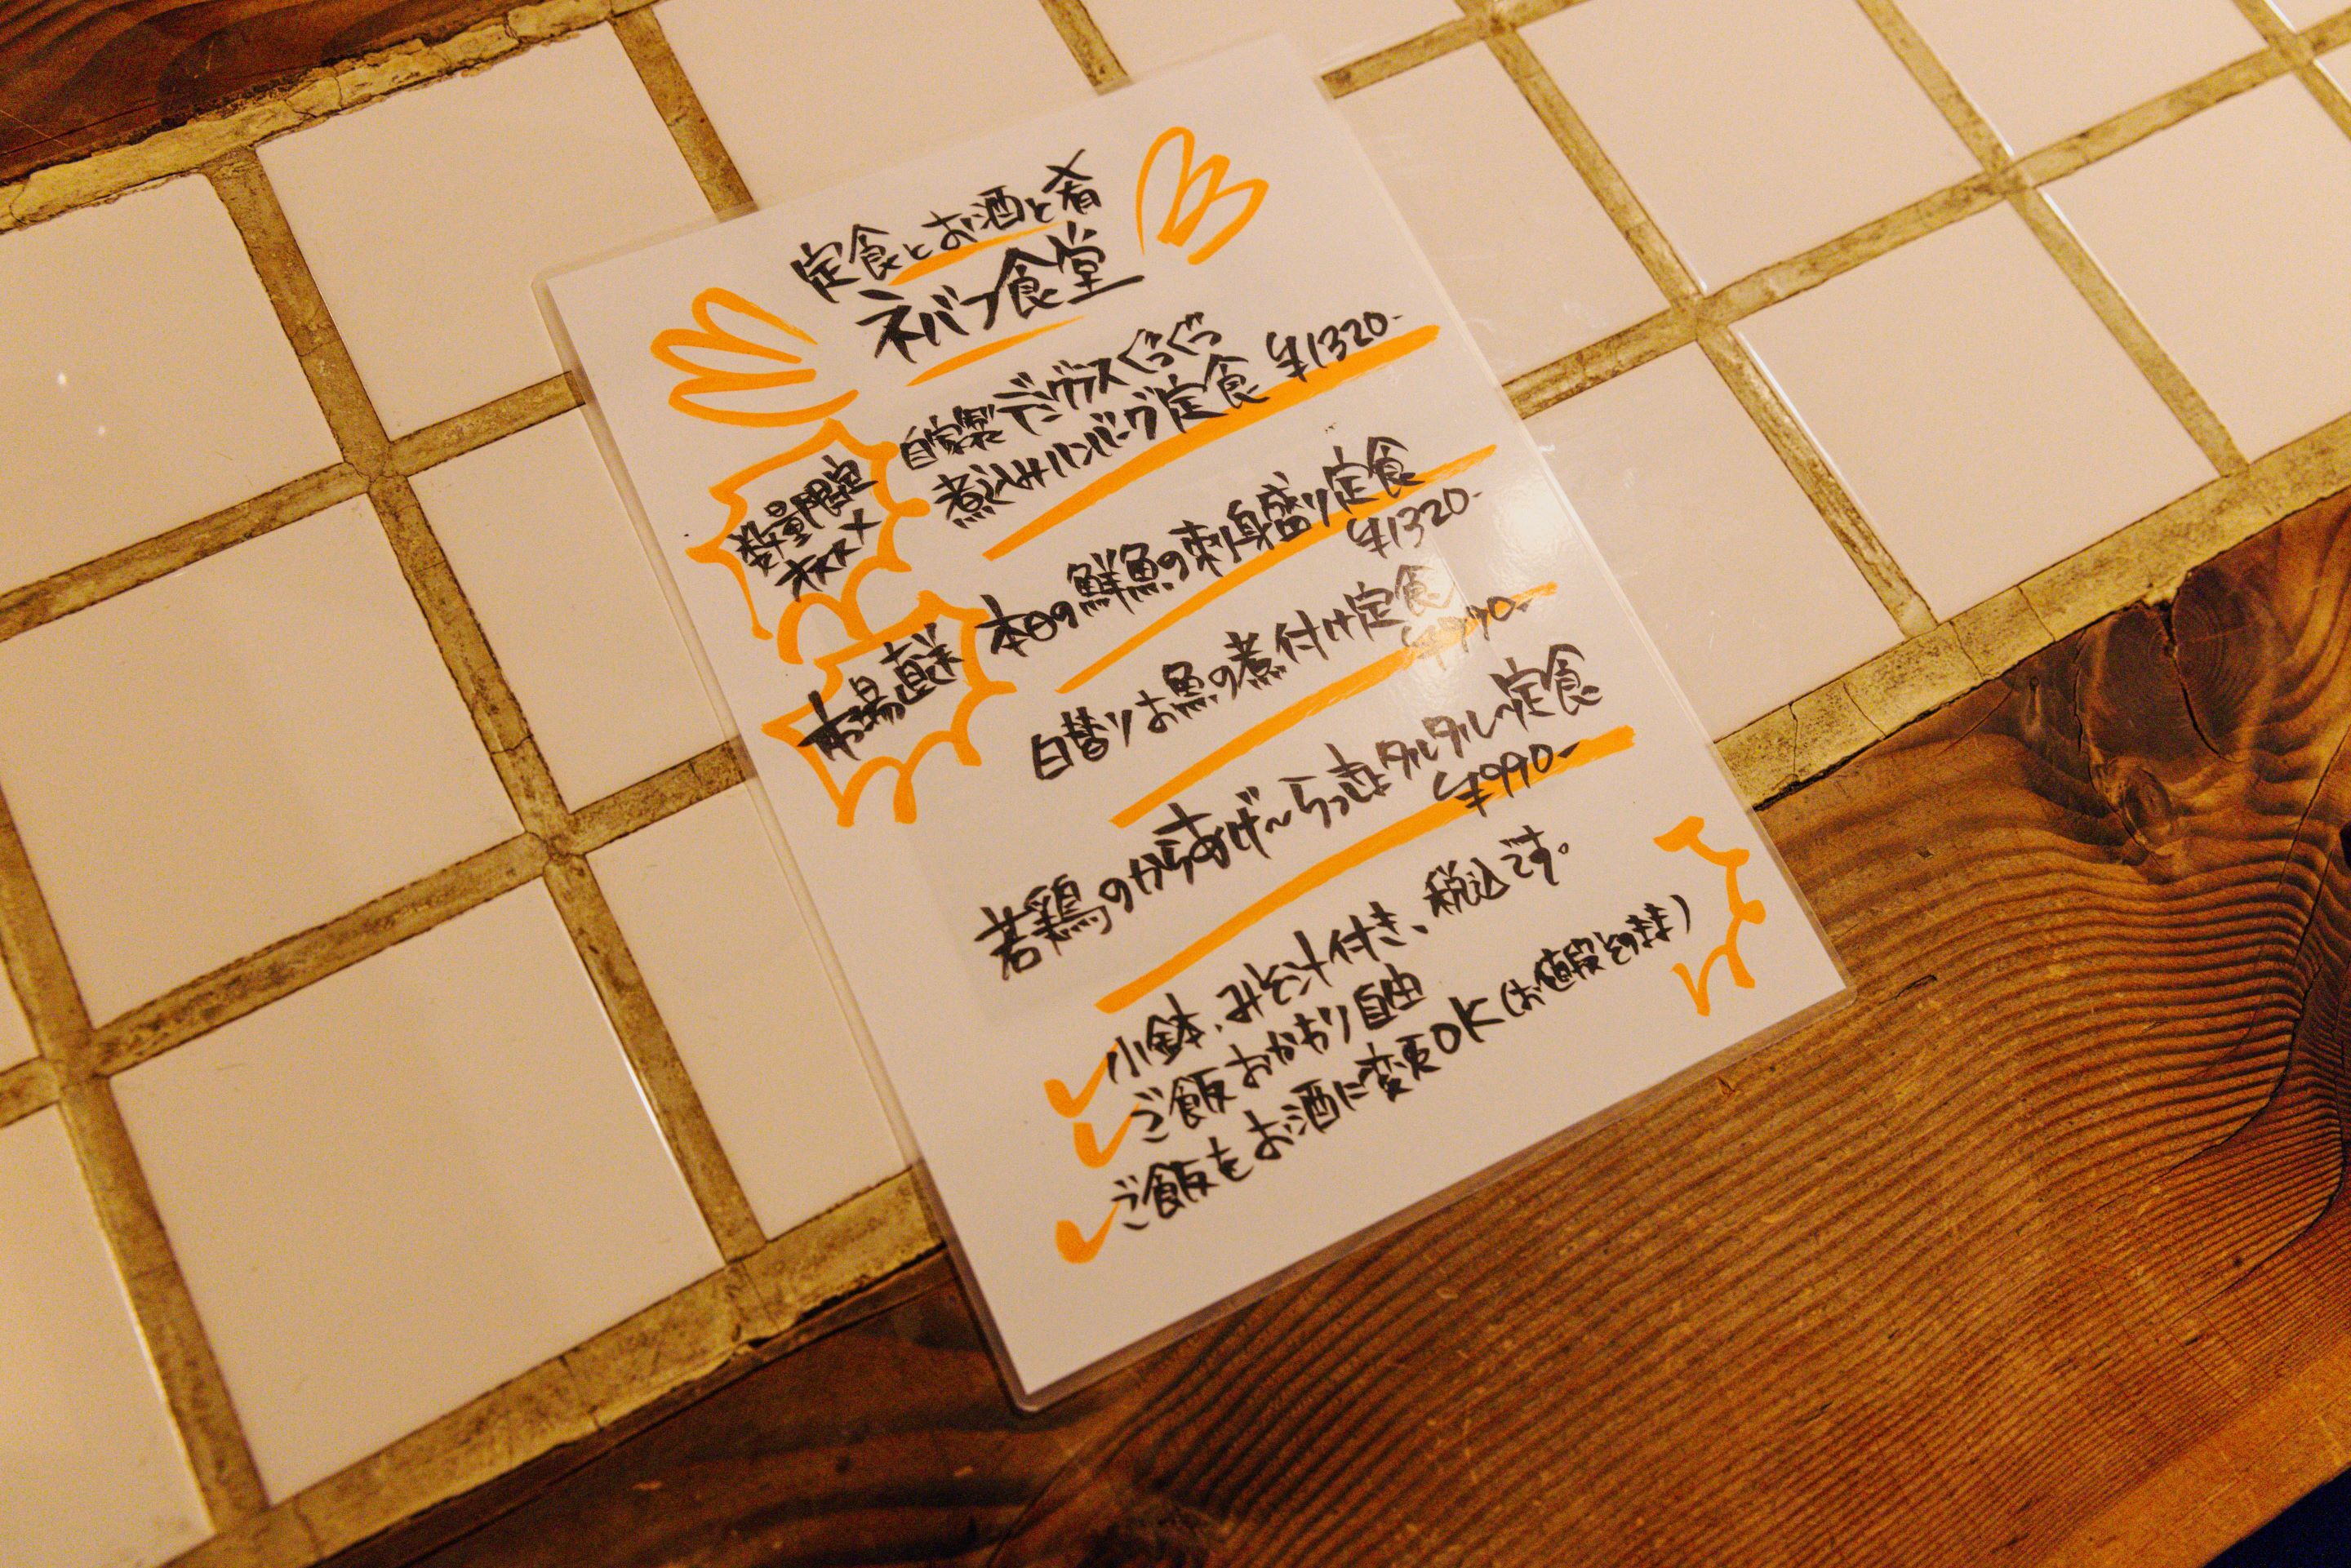 定食とお酒と肴
ネバフ食堂
自家製デミグラスぐつぐつ
煮込みハンバーグ定食 ¥1320-
数量限定
オススメ
本日の鮮魚の刺身盛り定食
¥1320-
市場直送
日替りお魚の煮付け定食
¥990-
若鶏のからあげ〜らっきょタルタル〜定食
¥990-
小鉢、みそ汁付き、税込です。
ご飯おかわり自由
ご飯をお酒に変更OK(お値段そのまま)